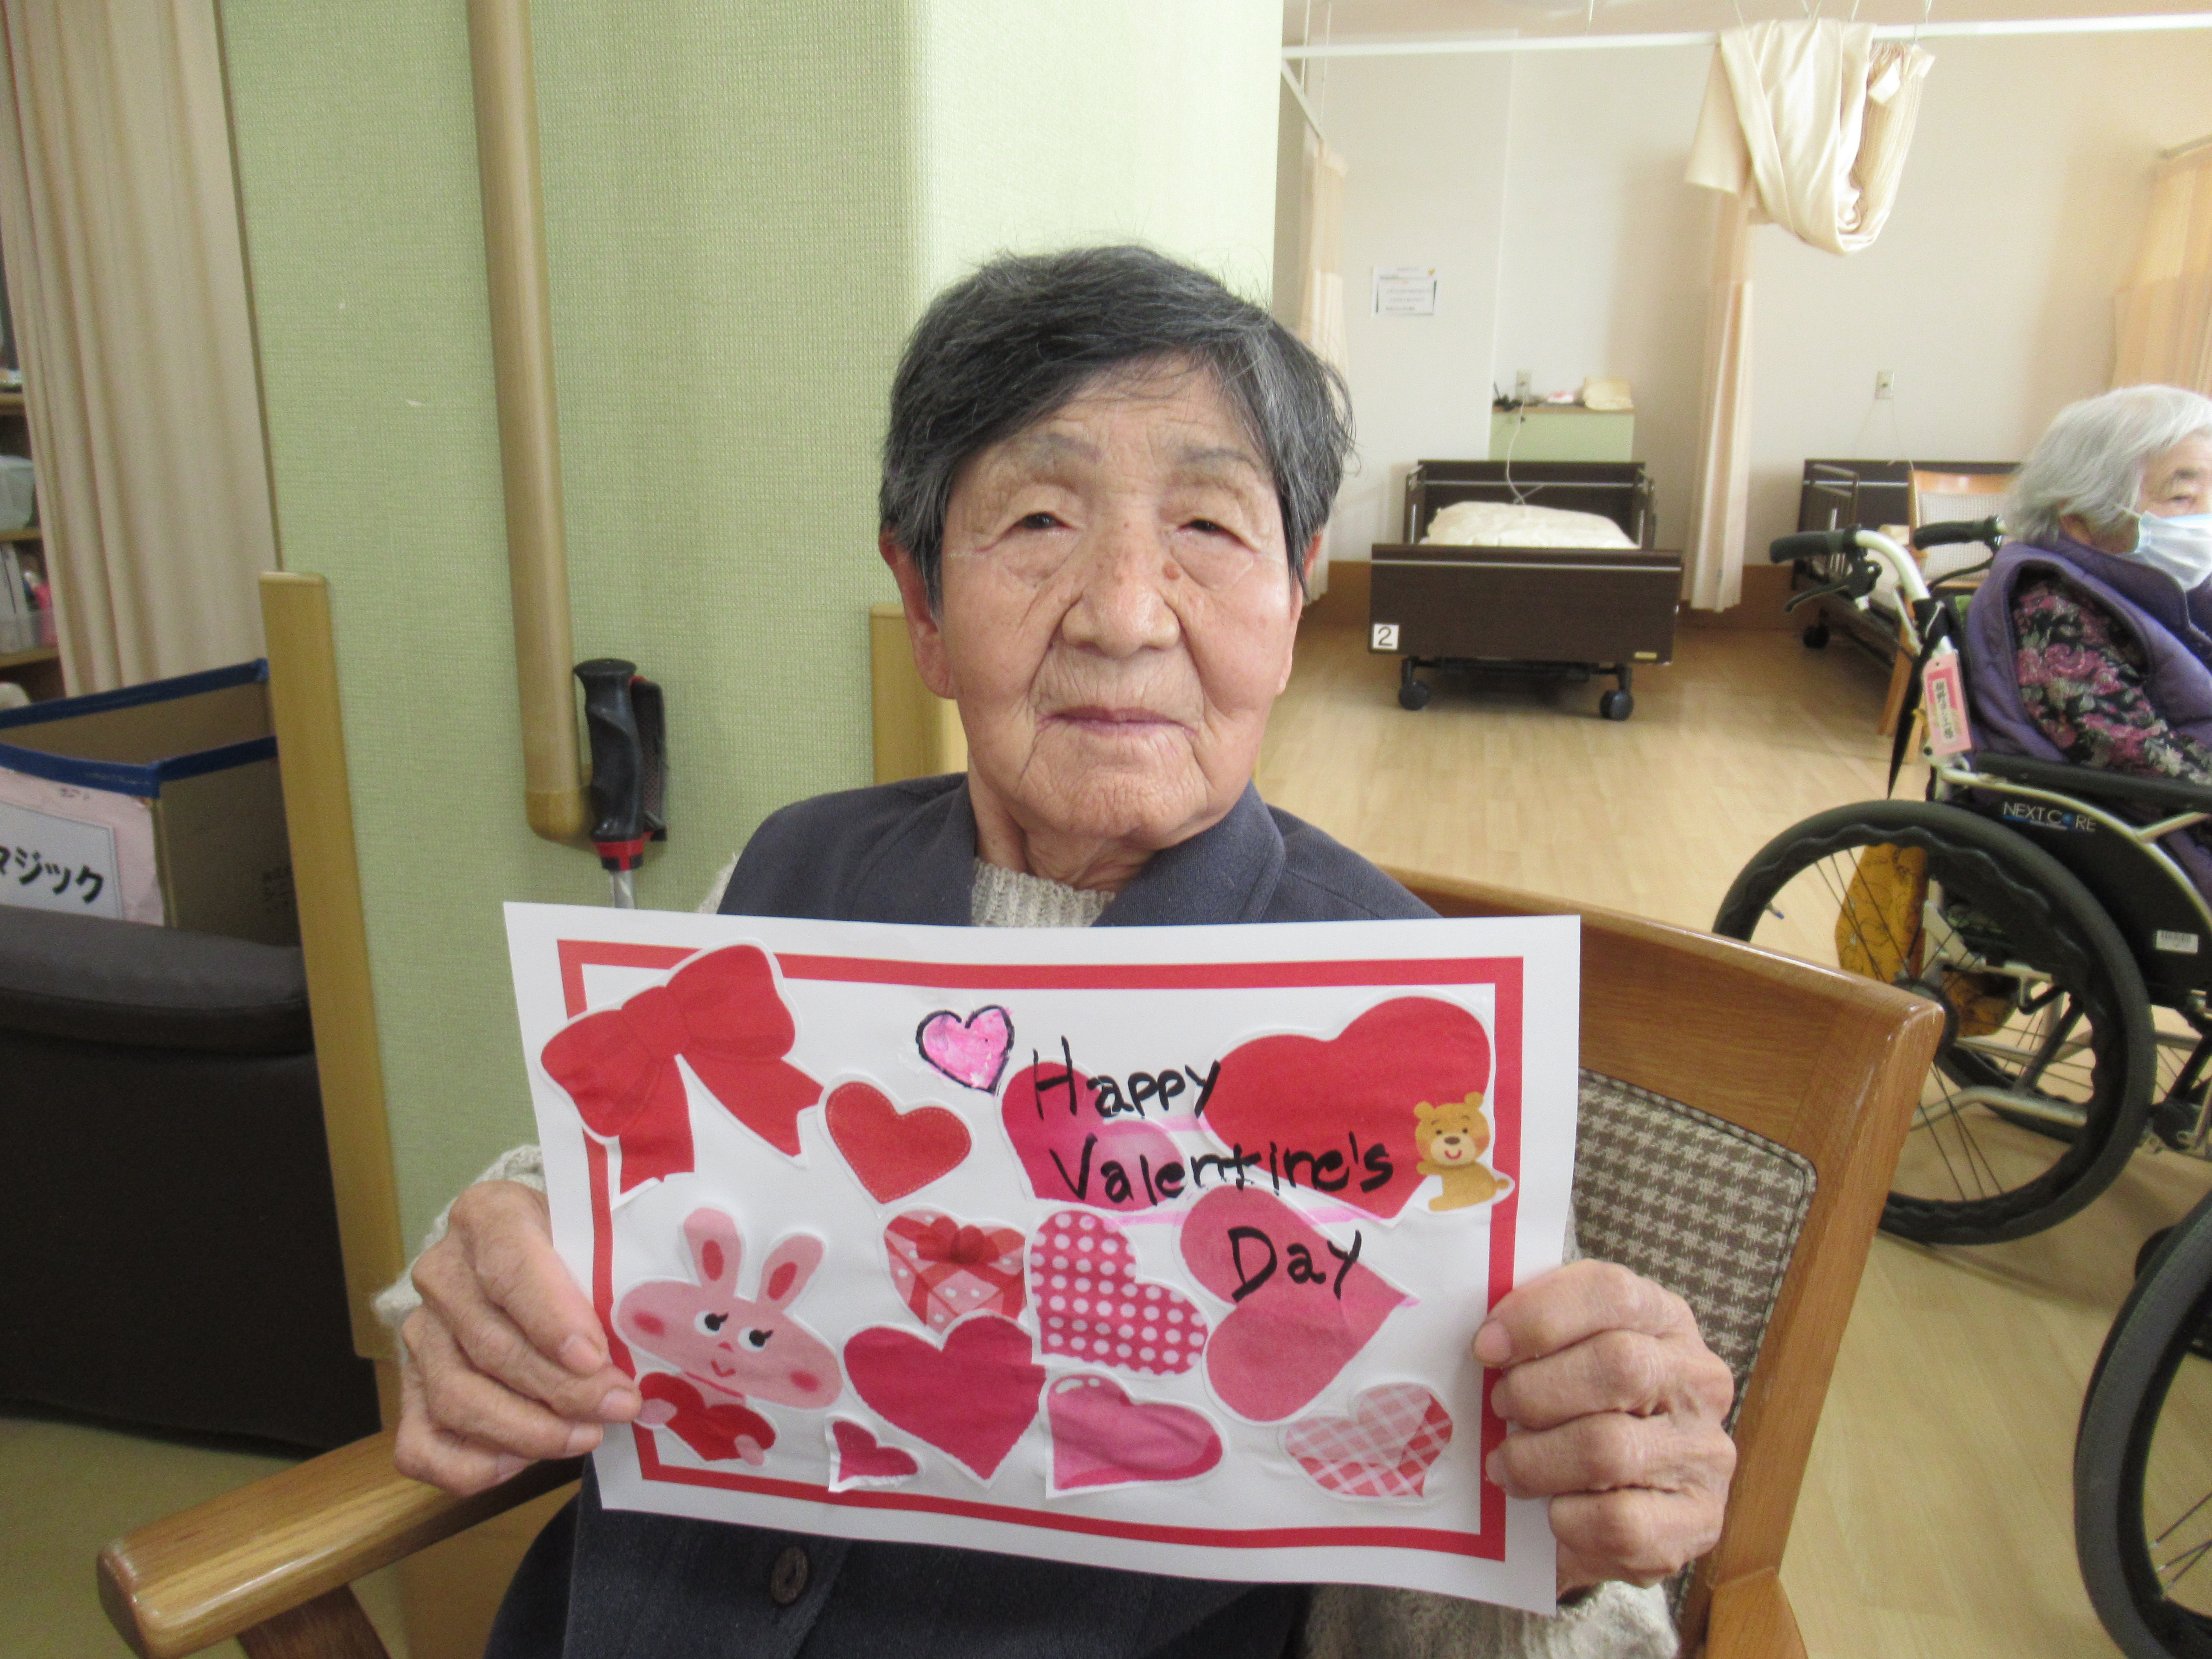 Happy
Valentine's
Day
マジック
2
NEXT CORE